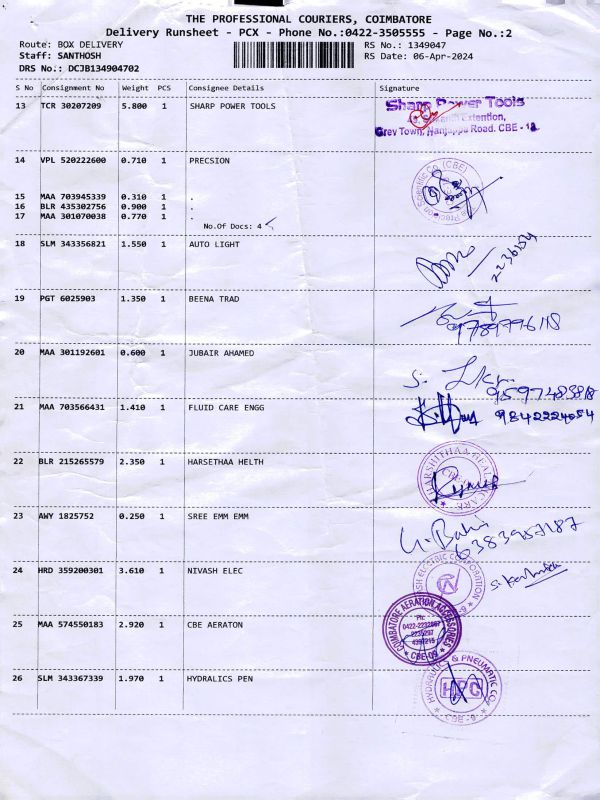 THE PROFESSIONAL COURIERS, COIMBATORE
Delivery Runsheet - PCX - Phone No.:0422-3505555 - Page No.:2
Route: BOX DELIVERY RS No.: 1349047
Staff: SANTHOSH RS Date: 06-Apr-2024
DRS No.: DCJB134904702
S No Consignment No Weight PCS Consignee Details Signature
13 TCR 30207209 5.800 1 SHARP POWER TOOLS
Sharp Power Tools
Extention,
Grey Town, Nanjappa Road. CBE - 18
14 VPL 520222600 0.710 1 PRECSION
15 MAA 703945339 0.310 1 .
16 BLR 435302756 0.900 1 .
17 MAA 301070038 0.770 1 .
No.Of Docs: 4
18 SLM 343356821 1.550 1 AUTO LIGHT
2236154
19 PGT 6025903 1.350 1 BEENA TRAD
9789796118
20 MAA 301192601 0.600 1 JUBAIR AHAMED
9597483818
21 MAA 703566431 1.410 1 FLUID CARE ENGG
9842224054
22 BLR 215265579 2.350 1 HARSETHAA HELTH
HARSHITHAA HEALTHCARE
23 AWY 1825752 0.250 1 SREE EMM EMM
6383957187
24 HRD 359200301 3.610 1 NIVASH ELEC
ELECTRIC CORPORATION
25 MAA 574550183 2.920 1 CBE AERATON
COIMBATORE AERATION ACCESSORIES
CBE-09
26 SLM 343367339 1.970 1 HYDRALICS PEN
HYDRAULIC & PNEUMATIC CO.
HPC
CBE-9